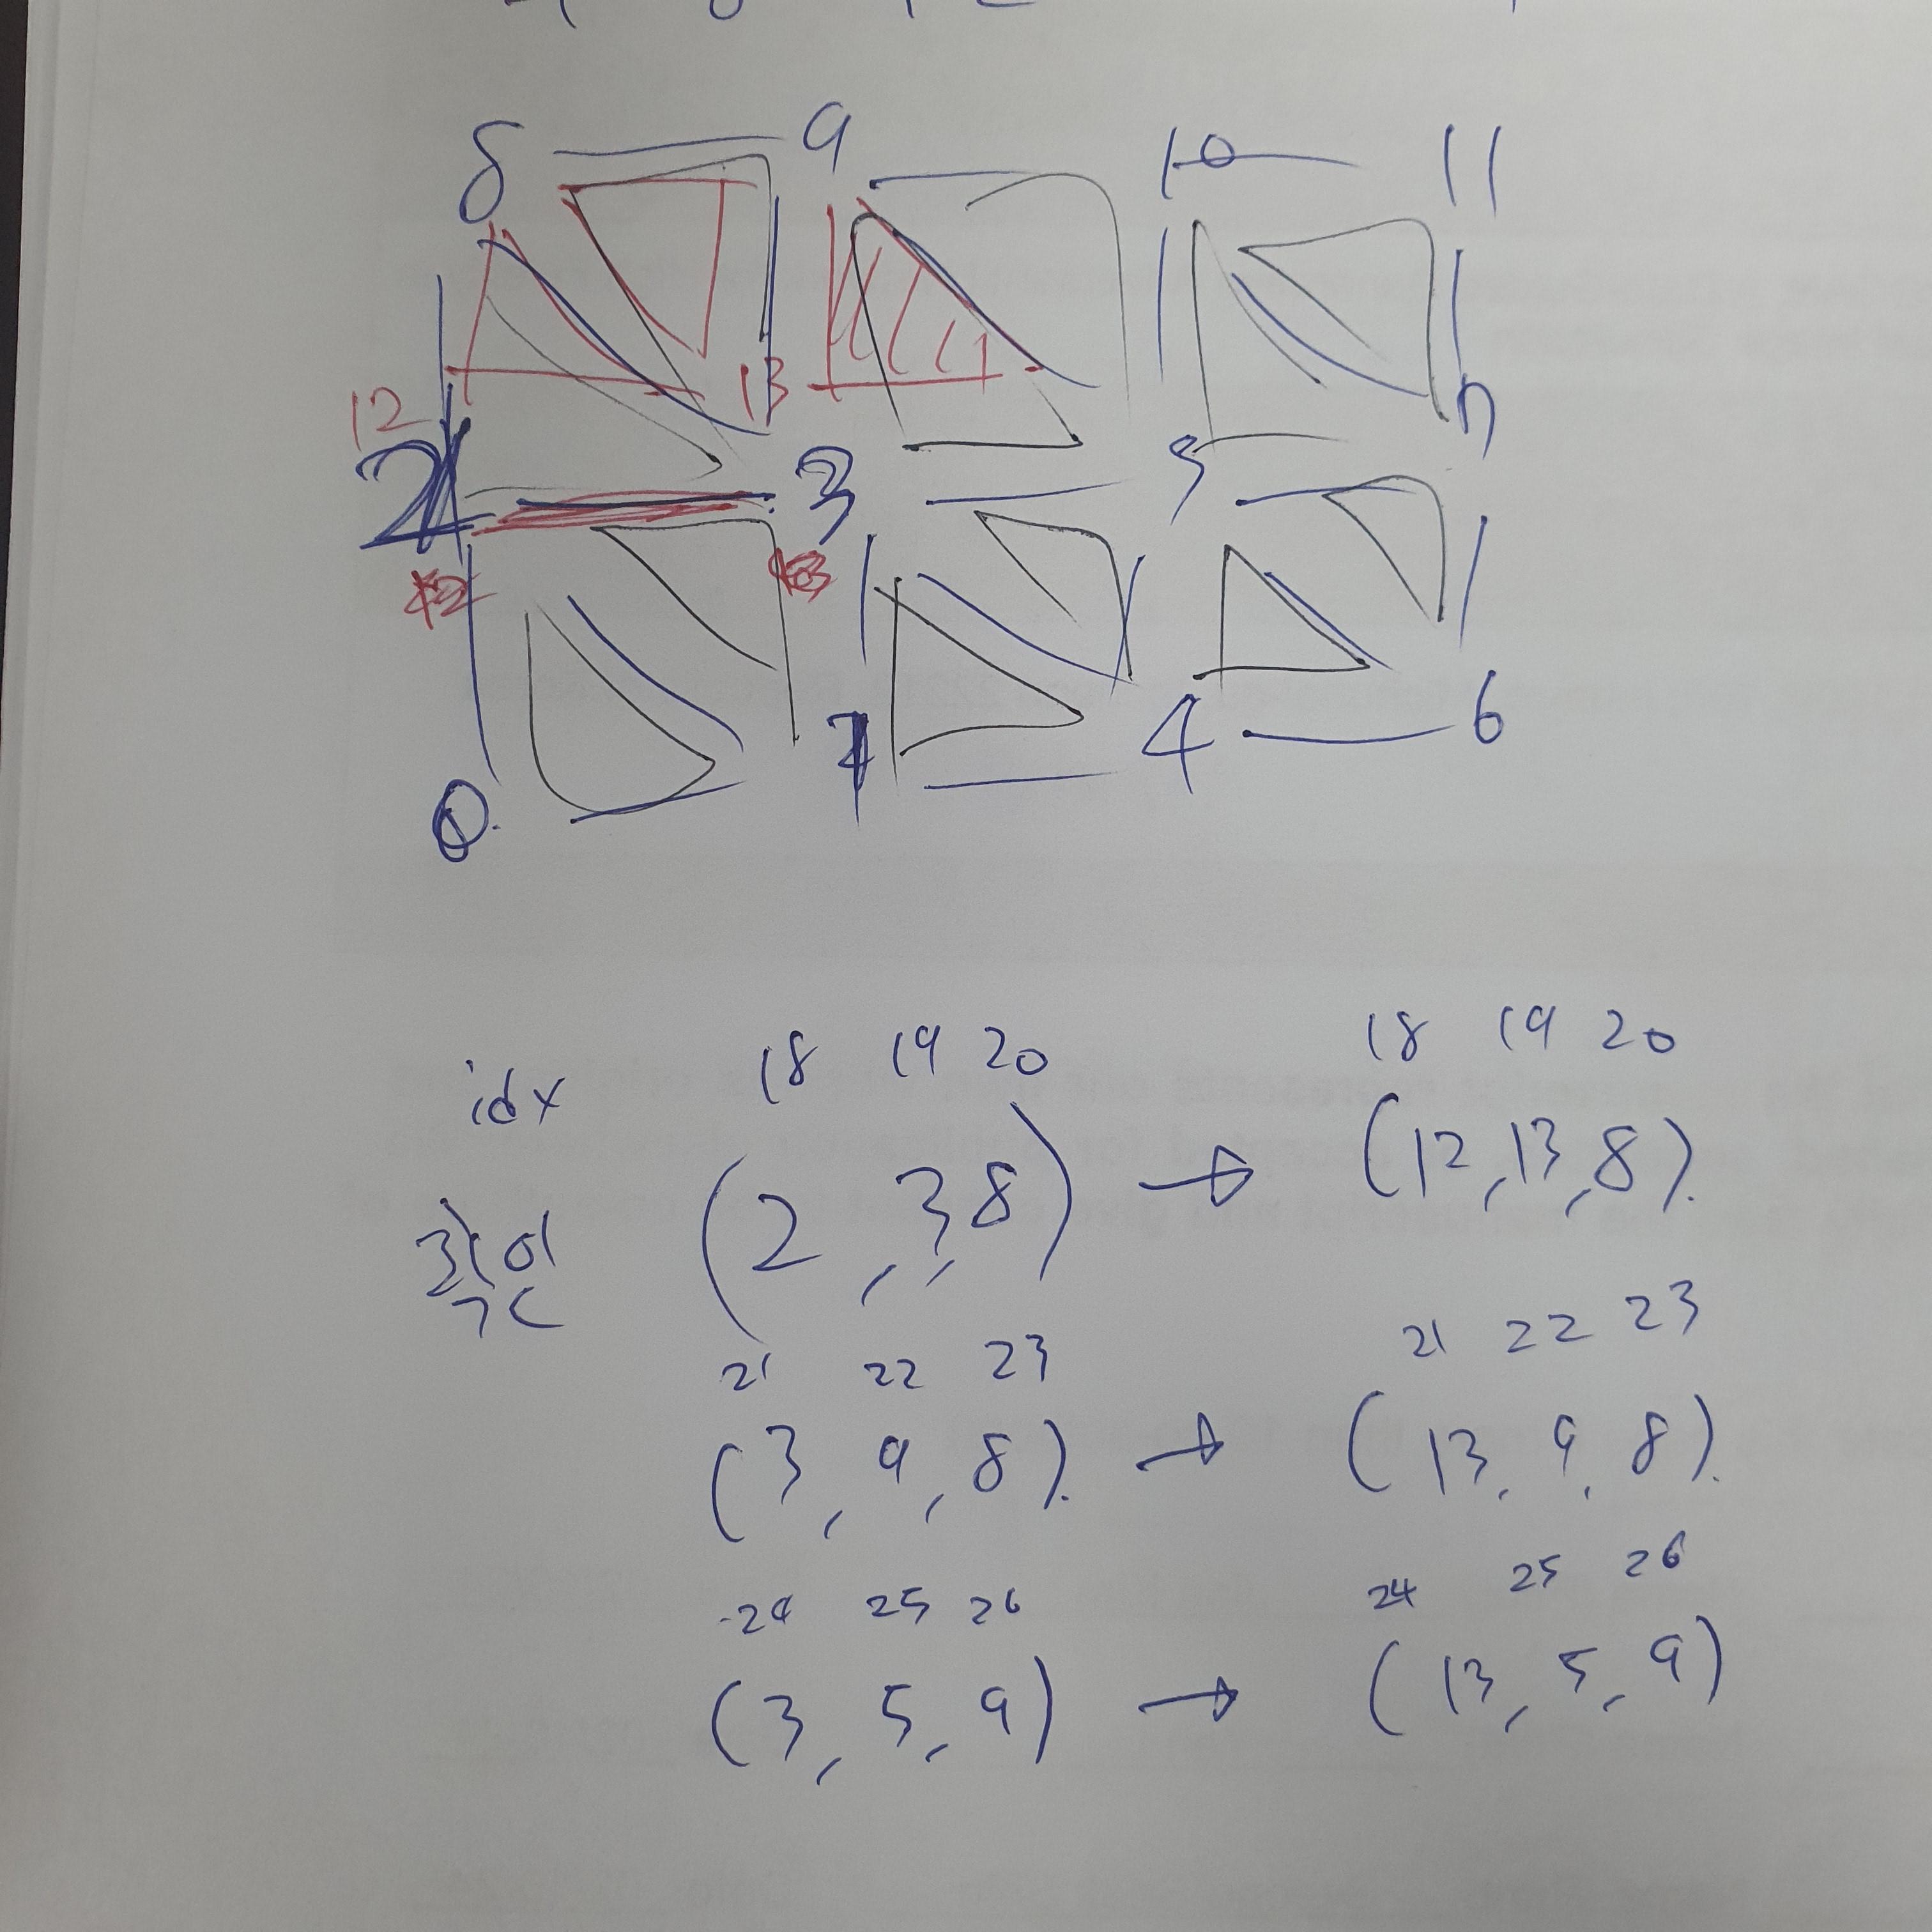 8 9 10 11
12 13
2 3 5 7
0 1 4 6
18 19 20 18 19 20
idx (2, 3, 8) → (12, 13, 8).
21 22 23 21 22 23
(3, 9, 8). → (13, 9, 8).
24 25 26 24 25 26
(3, 5, 9) → (13, 5, 9)